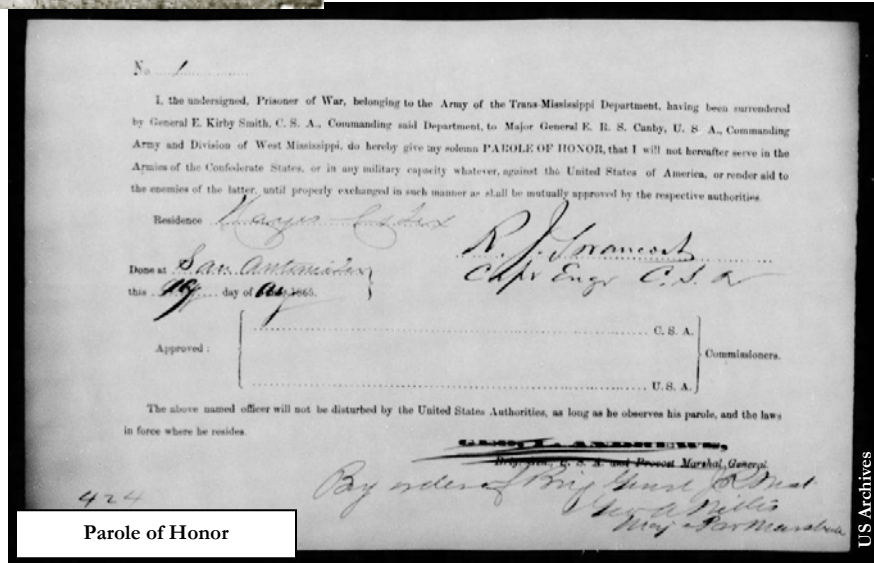 No 1
I, the undersigned, Prisoner of War, belonging to the Army of the Trans-Mississippi Department, having been surrendered
by General E. Kirby Smith, C. S. A., Commanding said Department, to Major General E. R. S. Canby, U. S A., Commanding
Army and Division of West Mississippi, do hereby give my solemn PAROLE OF HONOR, that I will not hereafter serve in the
Armies of the Confederate States, or in any military capacity whatever, against the United States of America, or render aid to
the enemies of the latter, until properly exchanged in such manner as shall be mutually approved by the respective authorities.
Residence Hays Co Tex
R. J.
Done at San Antonio Tex
Capt Engr C. S. A
this day of Aug 1865.
C. S. A.
Approved :
Commissioners.
U. S. A.
The above named officer will not be disturbed by the United States Authorities, as long as he observes his parole, and the laws
in force where he resides.
GEO. L. ANDREWS,
Brig. Gen., U. S. A. and Provost Marshal, General.
By order of Brig Genl
Geo A
Maj Pro Marshal
424
Parole of Honor
US Archives